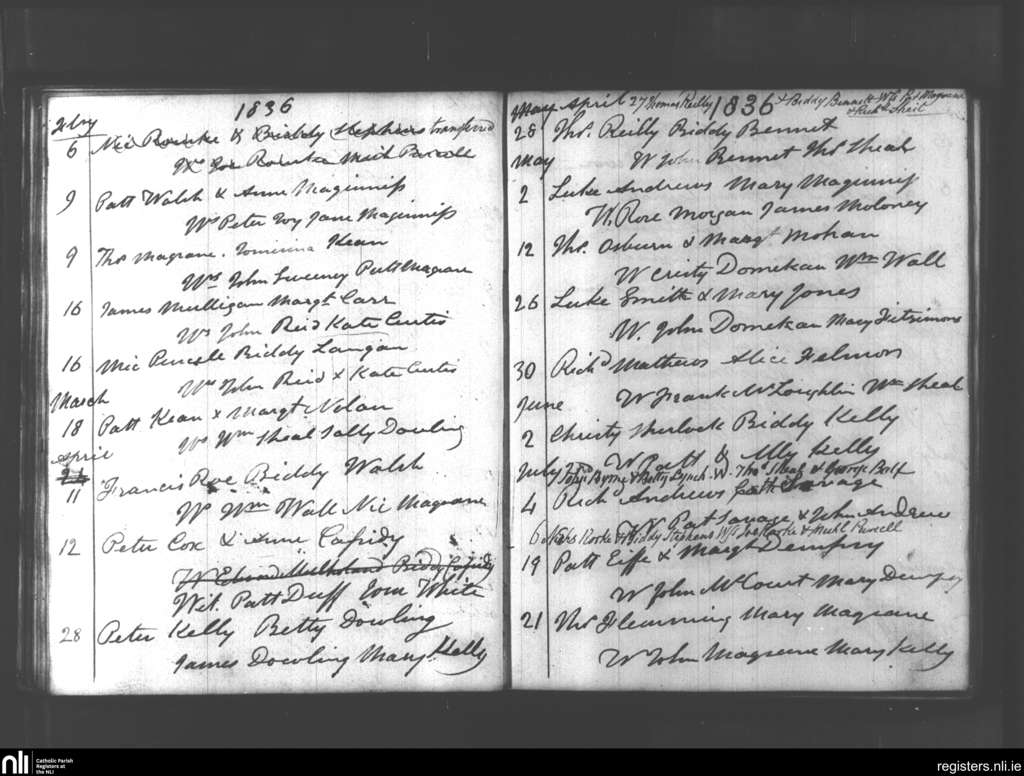 1836
Feby
6 Nic Rourke & Biddy Stephens transferred
Ws Joe Rourke Mich Purcell
9 Patt Walsh & Anne Maginniss
Ws Peter Ivy Jane Maginniss
9 Thos Magrane. Kean
Ws John Sweeney Patt Magrane
16 James Mulligan Margt Carr
Ws John Reid Kate Curtis
16 Mic Biddy Langan
Ws John Reid & Kate Curtis
March
18 Patt Kean & Margt Nolan
Ws Wm Sheal Sally Dowling
April
11 Francis Roe Biddy Walsh
Ws Wm Wall Nic Magrane
12 Peter Cox & Anne Cassidy
W Edward Mulholand Biddy Cassidy
Wit. Patt Duff Tom White
28 Peter Kelly Betty Dowling
James Dowling Mary Kelly
May April 27 Thomas Reilly 1836 & Biddy Bennett Ws Magrane
& Richd Sheil
28 Thos. Reilly Biddy Bennet
May W John Bennet Thos Sheal
2 Luke Andrews Mary Maginnis
W. Rose Morgan James Moloney
12 Thos. Osburn & Margt Mohan
W Cristy Domekan Wm Wall
26 Luke Smith & Mary Jones
W. John Domekan Mary Fitzsimons
30 Richd Mathews Alice Felmon
June W Frank McLoughlin Wm Sheal
2 Christy Shurlock Biddy Kelly
W Patt & Ally Kelly
July 2nd John Byrne & Betty Lynch. W. Thos Sheal & George Balf
4 Richd Andrews Cath Savage
W Pat Savage & John Andrew
6 Rorke & Biddy Stephens Ws Jos Rorke & Michl Purcell
19 Patt Eiffe & Margt Dempsy
W John McCourt Mary Dempsey
21 Thos Flemming Mary Magrane
W John Magrane Mary Kelly
nli
Catholic Parish
Registers at
the NLI
registers.nli.ie